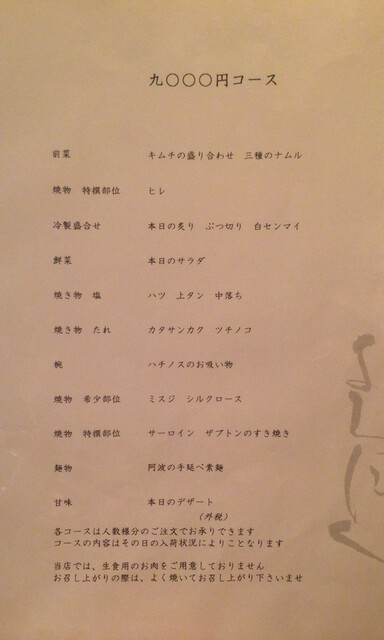 九〇〇〇円コース
前菜 キムチの盛り合わせ 三種のナムル
焼物 特撰部位 ヒレ
冷製盛合せ 本日の炙り ぶつ切り 白センマイ
鮮菜 本日のサラダ
焼き物 塩 ハツ 上タン 中落ち
焼き物 たれ カタサンカク ツチノコ
椀 ハチノスのお吸い物
焼物 希少部位 ミスジ シルクロース
焼物 特撰部位 サーロイン ザブトンのすき焼き
麺物 阿波の手延べ素麺
甘味 本日のデザート
(外税)
各コースは人数様分のご注文でお承りできます
コースの内容はその日の入荷状況によりことなります
当店では、生食用のお肉をご用意しておりません
お召し上がりの際は、よく焼いてお召し上がり下さいませ